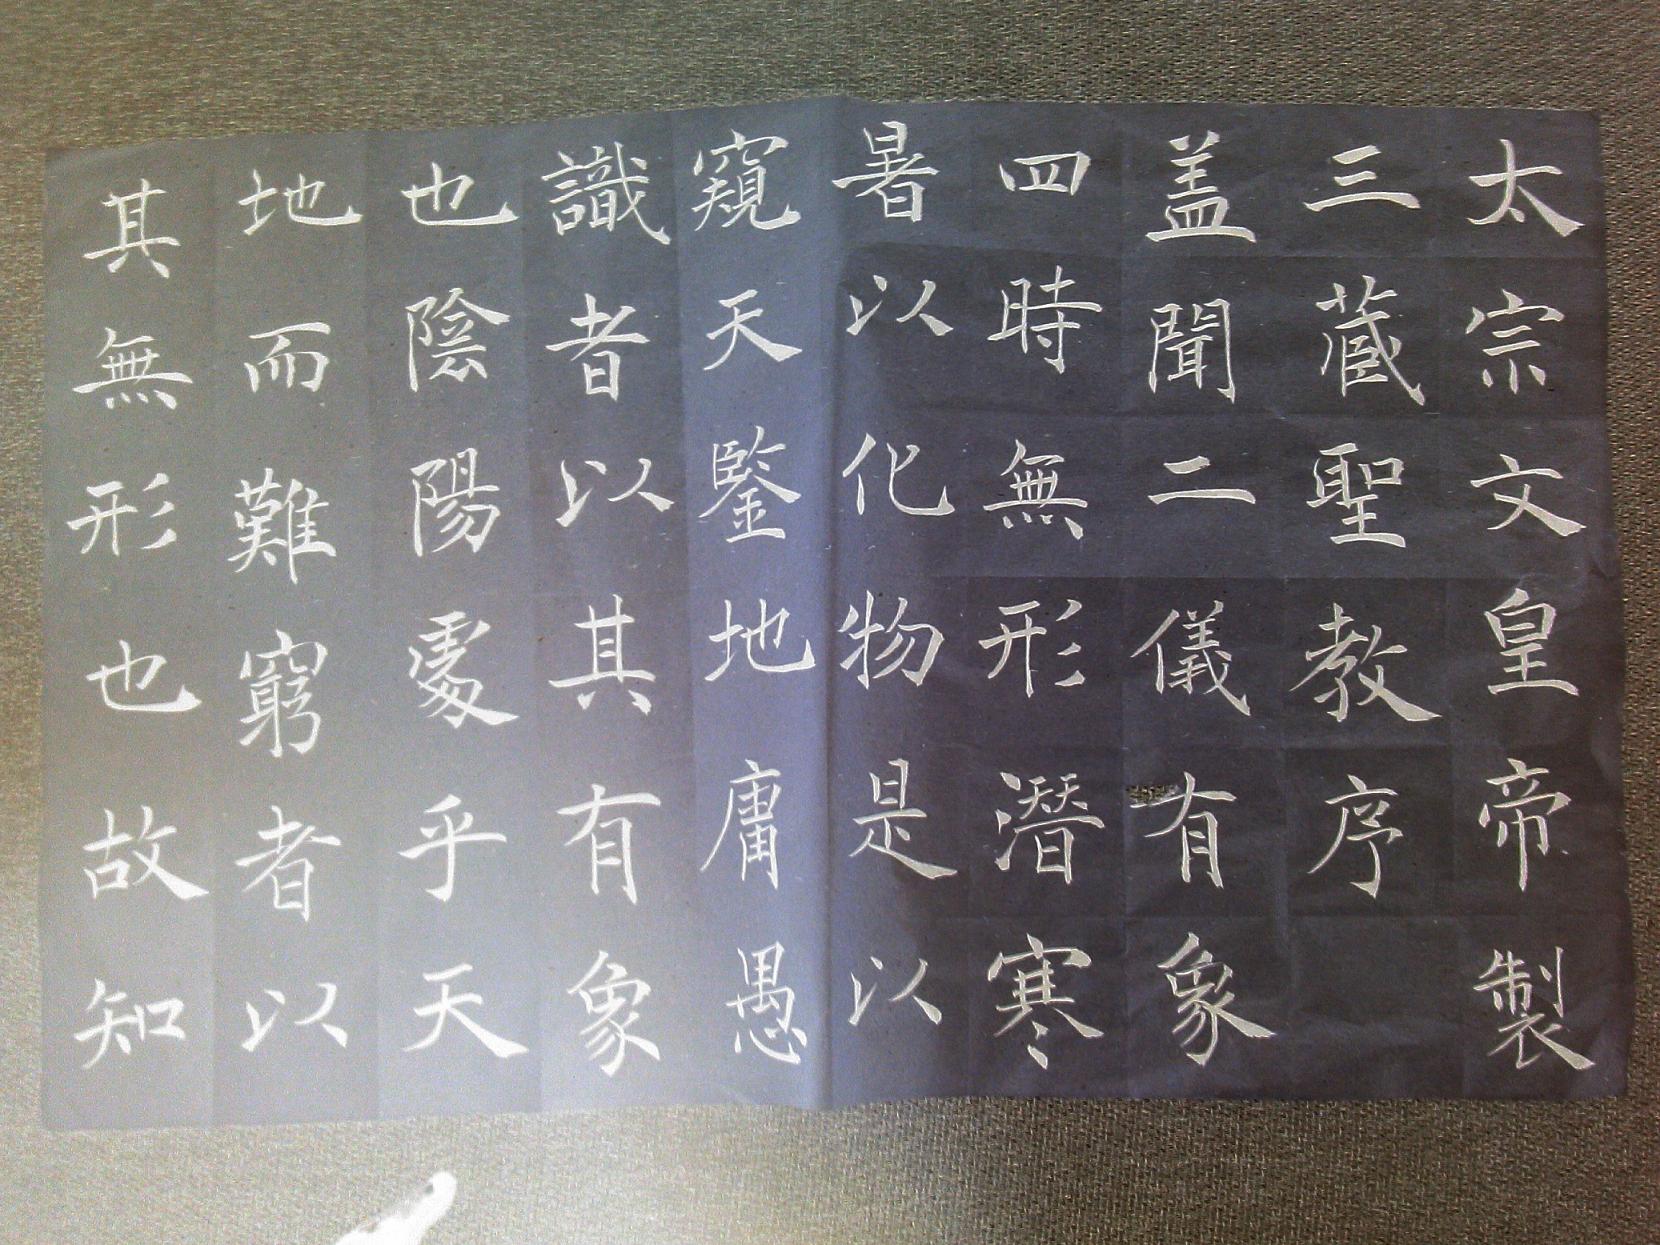 太宗文皇帝製
三蔵聖教序
盖聞二儀有象
四時無形潛寒
暑以化物是以
窺天鑒地庸愚
識者以其有象
也陰陽處乎天
地而難窮者以
其無形也故知